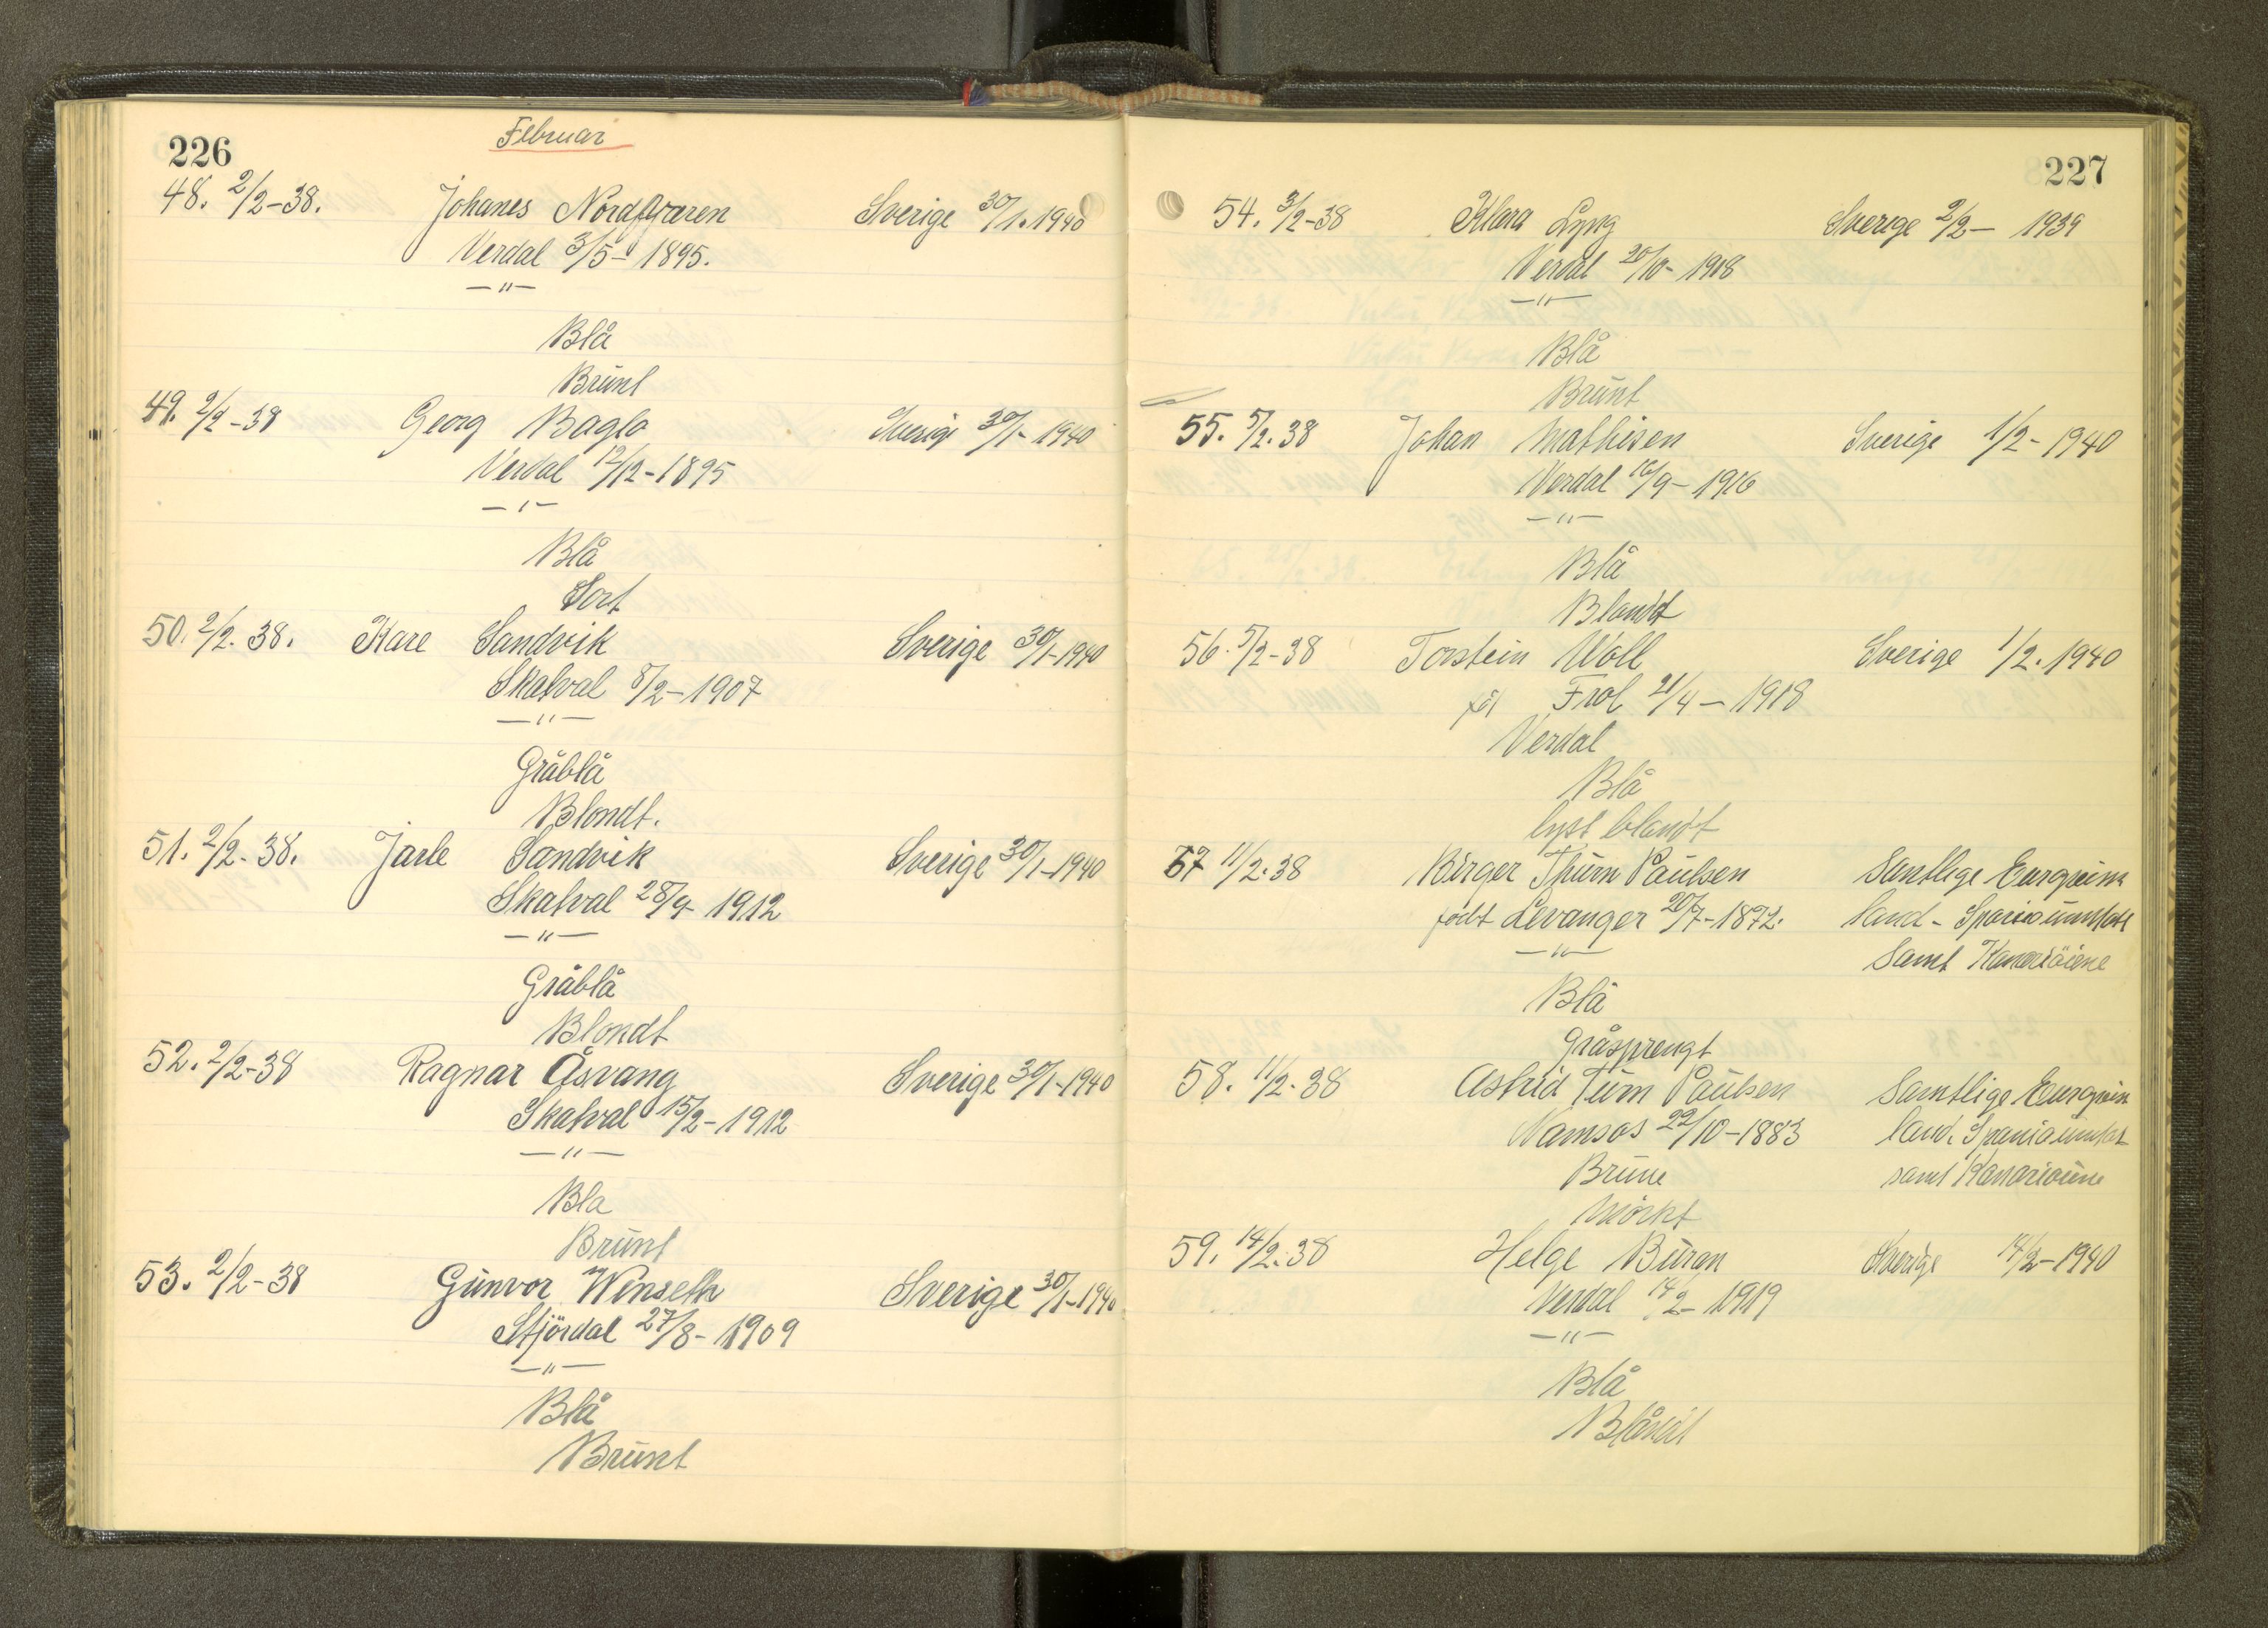 226
Februar
48. 2/2-38. Johanes Sverige 30/1. 1940
Verdal 3/5- 1895.
-"-
Blå
Brunt
49. 2/2-38 Georg Baglo Sverige 30/1- 1940
Verdal 12/12-1895
-"-
Blå
Sort
50. 2/2. 38. Kare Sandvik Sverige 30/1-1940
Skatval 8/2-1907
-"-
Gråblå
Blondt.
51. 2/2. 38. Jarle Sandvik Sverige 30/1-1940
Skatval 28/9- 1912
-"-
Gråblå
Blondt
52. 2/2-38 Ragnar Åsvang Sverige 30/1-1940
Skatval 15/2-1912
-"-
Bla
Brunt
53. 2/2-38 Gunvor Winseth Sverige 30/1-1940
Stjördal 27/8- 1909
-"-
Blå
Brunt
227
54. 3/2-38 Klara Lyng Sverige 2/2- 1939
Verdal 20/10- 1908
-"-
Blå
Brunt
55. 5/2. 38 Johan Mathisen Sverige 1/2- 1940
Verdal 16/9- 1916
-"-
Blå
Blondt
56. 5/2-38 Torstein Woll Sverige 1/2. 1940
Frol 21/4- 1918
Verdal
Blå
lyst blondt
57 11/2.38 Birger Thurn Paulsen Samtlige
født Levanger 20/7-1872. land - Spania unntatt
-"- samt Kanariöiene
Blå
Gråsprengt
58. 11/2. 38 Astrid Turn Paulsen Samtlige
Namsos 22/10-1883 land. Spania unntat
Brune samt Kanarioiene
Mörkt
59. 14/2. 38 Helge Sverige 14/2-1940
Verdal 14/2- 1919
-"-
Blå
Blondt